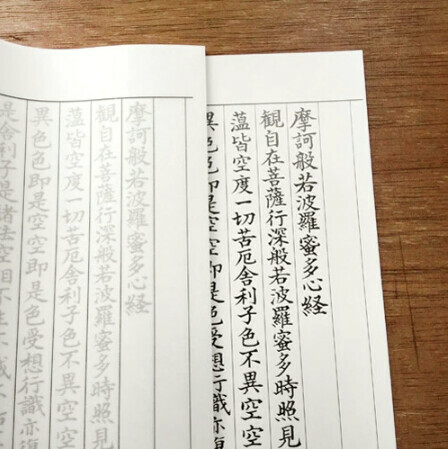 摩訶般若波羅蜜多心経
観自在菩薩行深般若波羅蜜多時照見
薀皆空度一切苦厄舎利子色不異空空
異色色即是空空即是色受想行識亦復
摩訶般若波羅蜜多心経
観自在菩薩行深般若波羅蜜多時照見
薀皆空度一切苦厄舎利子色不異空空
異色色即是空空即是色受想行識亦復
是舎利子是諸法空相不生不滅不垢